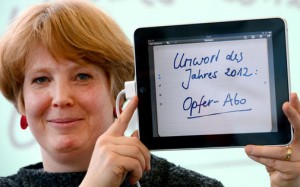 Unwort des
Jahres 2012:
Opfer-Abo